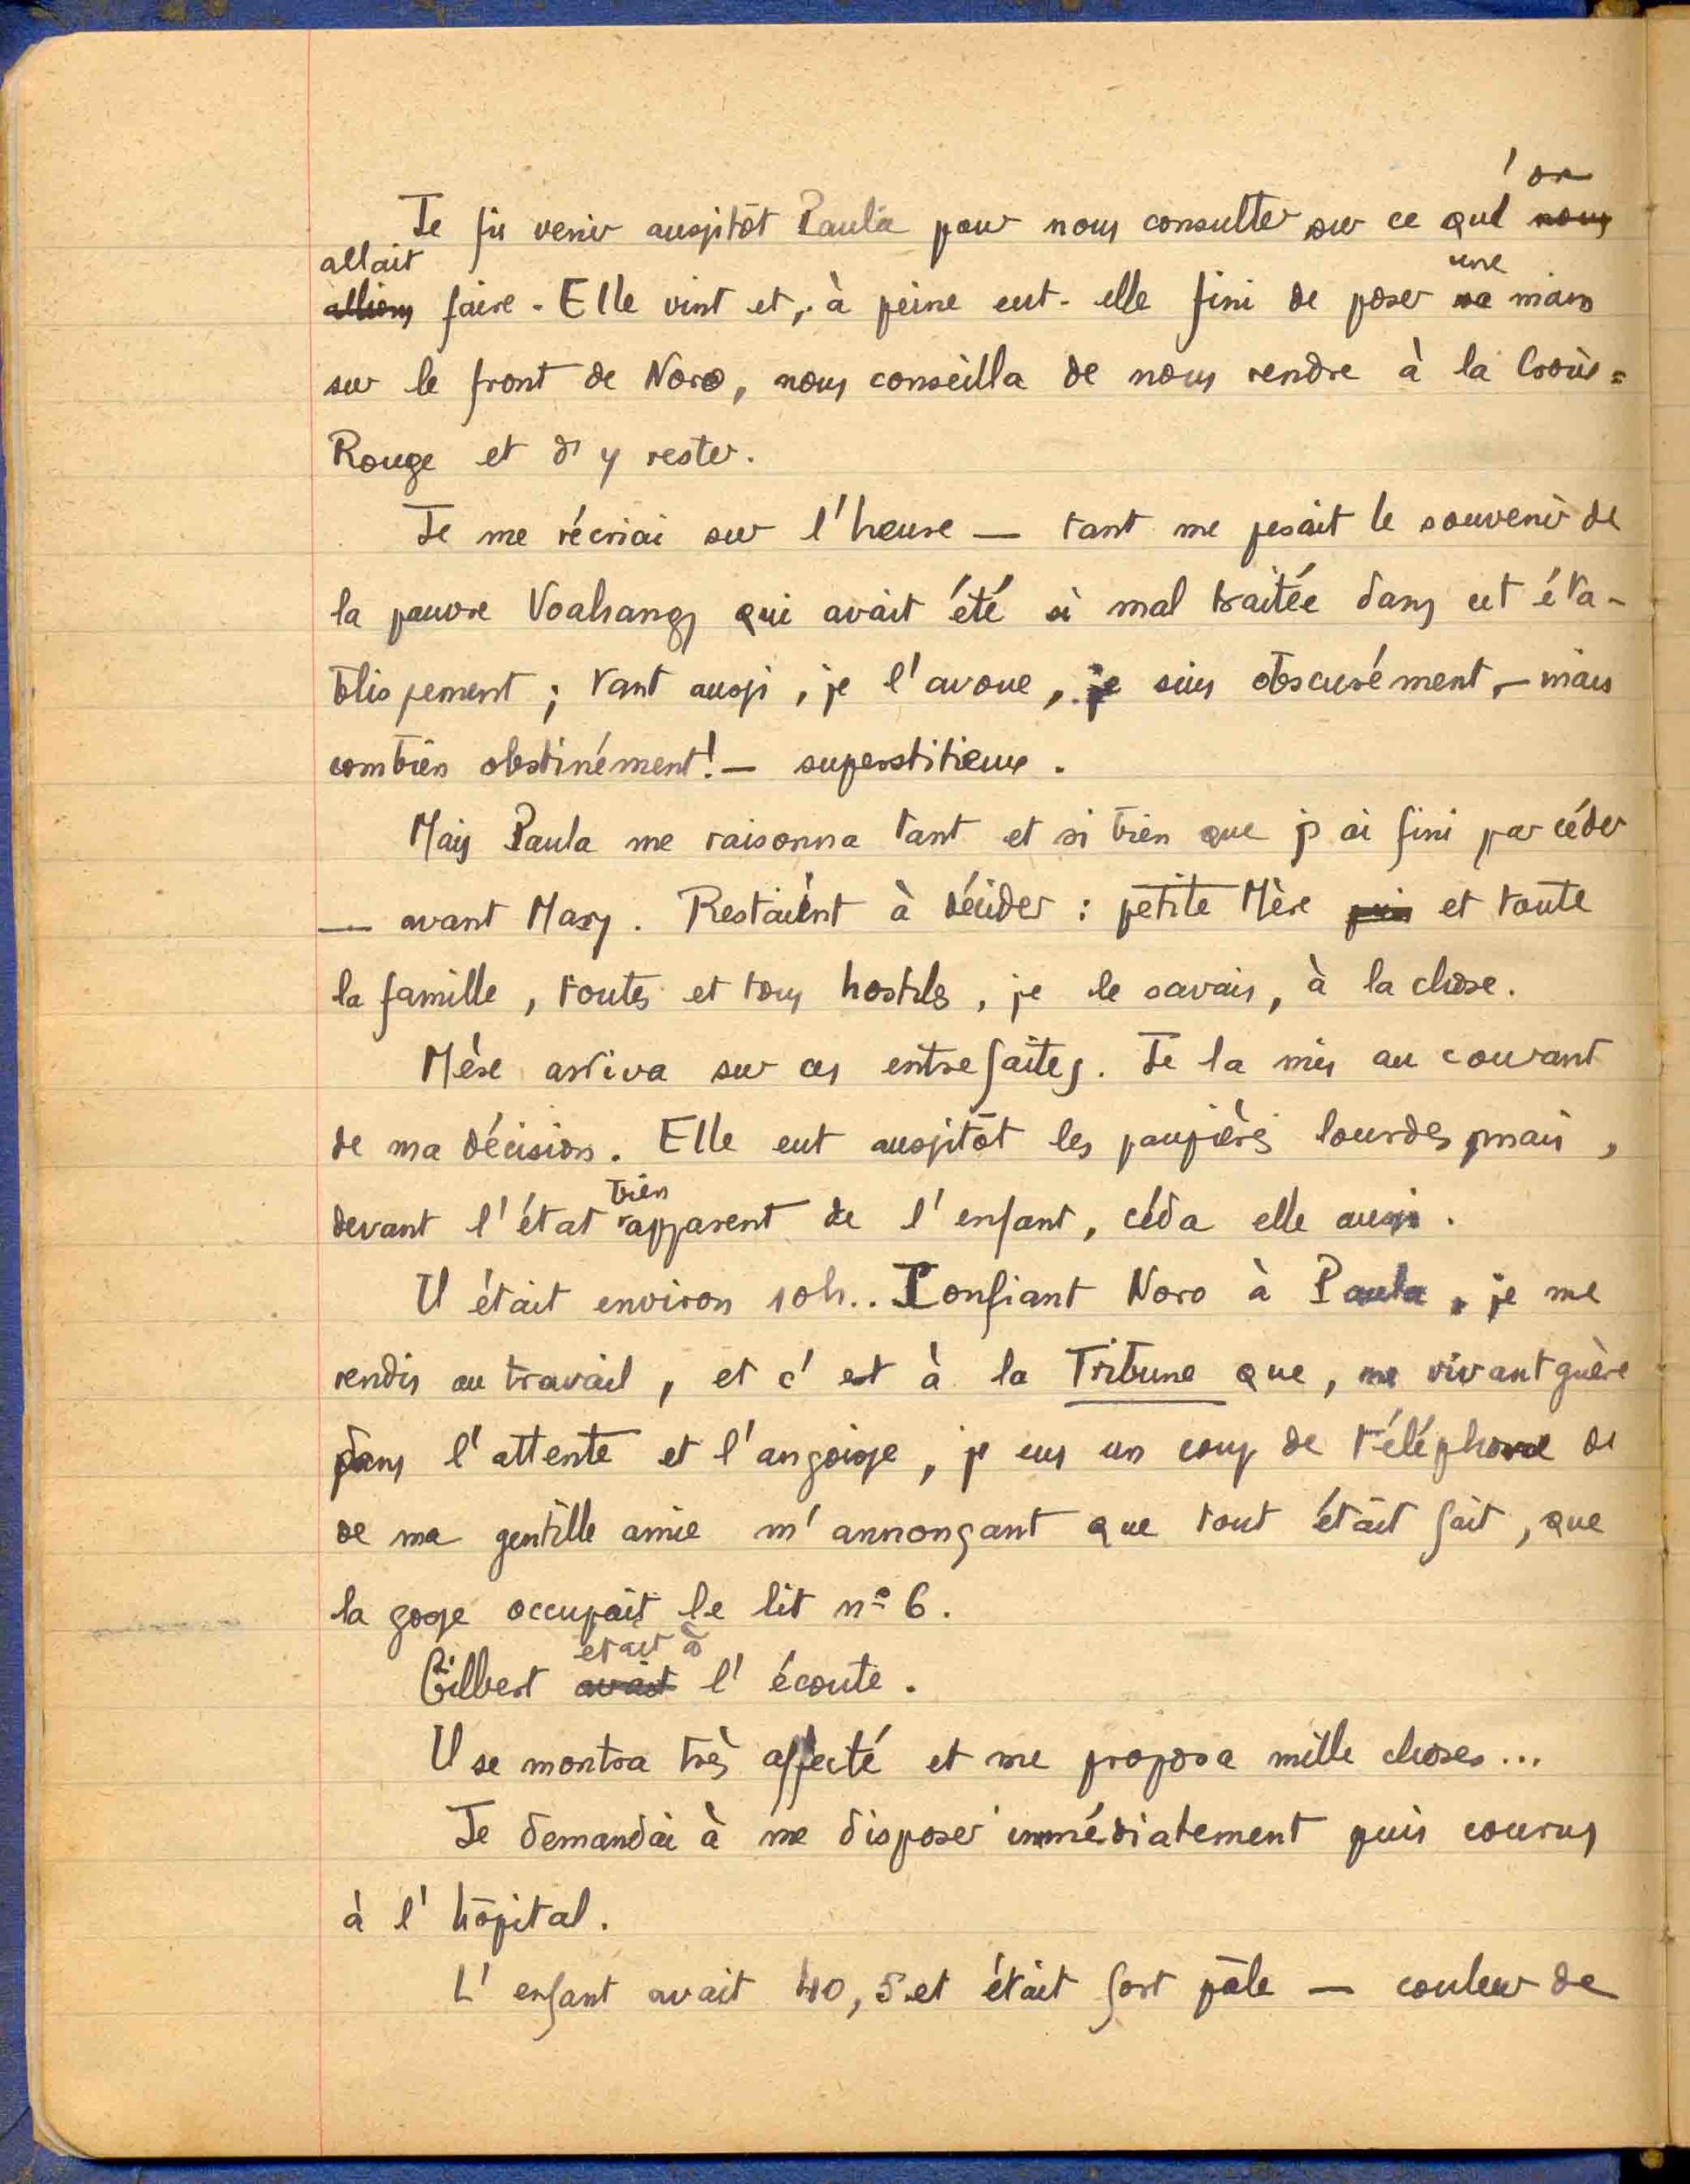 ' on
Je fis venir aussitôt Paula pour nous consulter sur ce que nous
allait
allions faire. Elle vint et, à peine eut-elle fini de poser sa main
une
sur le front de Noro, nous conseilla de nous rendre à la Croix=
Rouge et d'y rester.
Je me récriai sur l'heure — tant me pesait le souvenir de
la pauvre Voahangy qui avait été si mal traitée dans cet éta-
blissement ; tant aussi, je l'avoue, je suis obscurément, — mais
combien obstinément ! — superstitieux.
Mais Paula me raisonna tant et si bien que j'ai fini par céder
— avant Mary. Restaient à décider : petite Mère puis et toute
la famille, toutes et tous hostiles, je le savais, à la chose.
Mère arriva sur ces entrefaites. Je la mis au courant
de ma décision. Elle eut aussitôt les paupières lourdes mais,
bien
devant l'état apparent de l'enfant, céda elle aussi.
Il était environ 10h.. Confiant Noro à Paula, je me
rendis au travail, et c'est à la Tribune que, ne vivant guère
dans l'attente et l'angoisse, je eus un coup de téléphone de
de ma gentille amie m'annonçant que tout était fait, que
la gosse occupait le lit n° 6.
était à
Gilbert avait l'écoute.
Il se montra très affecté et me proposa mille choses...
Je demandai à me disposer immédiatement puis courus
à l'hôpital.
L'enfant avait 40,5 et était fort pâle — couleur de